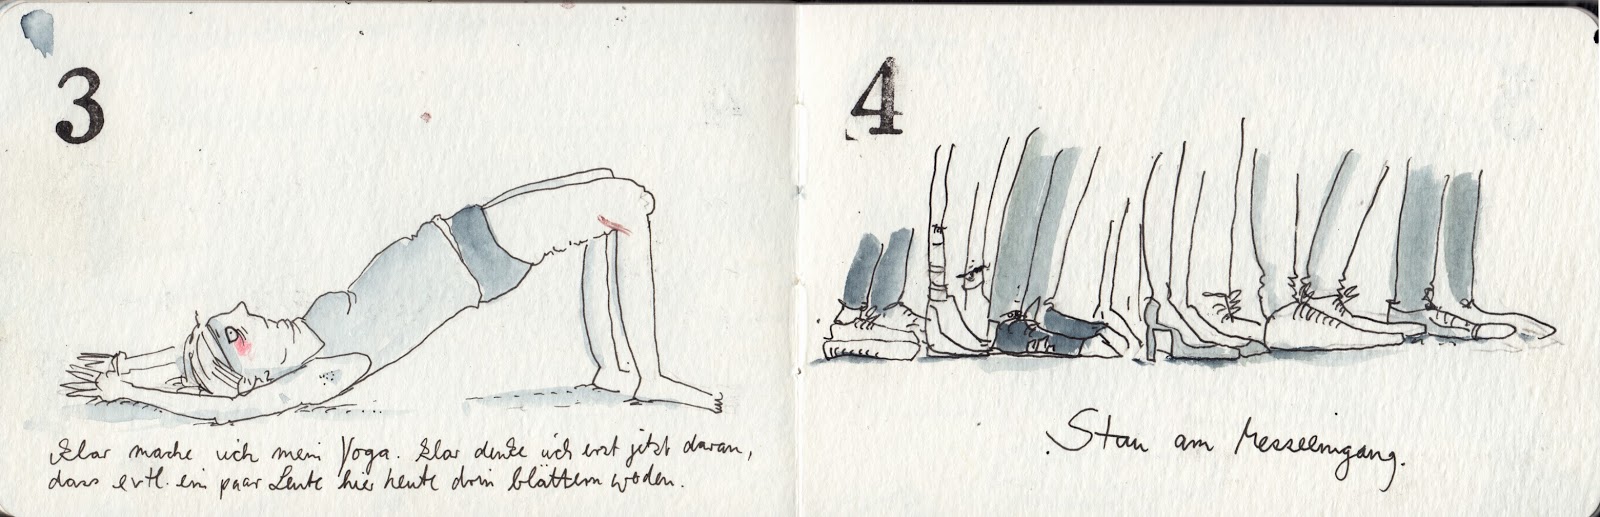 3
Klar mache ich mein Yoga. Klar denke ich erst jetzt daran,
dass evtl. ein paar Leute hier heute drin blättern werden.
4
Stau am Messeeingang.